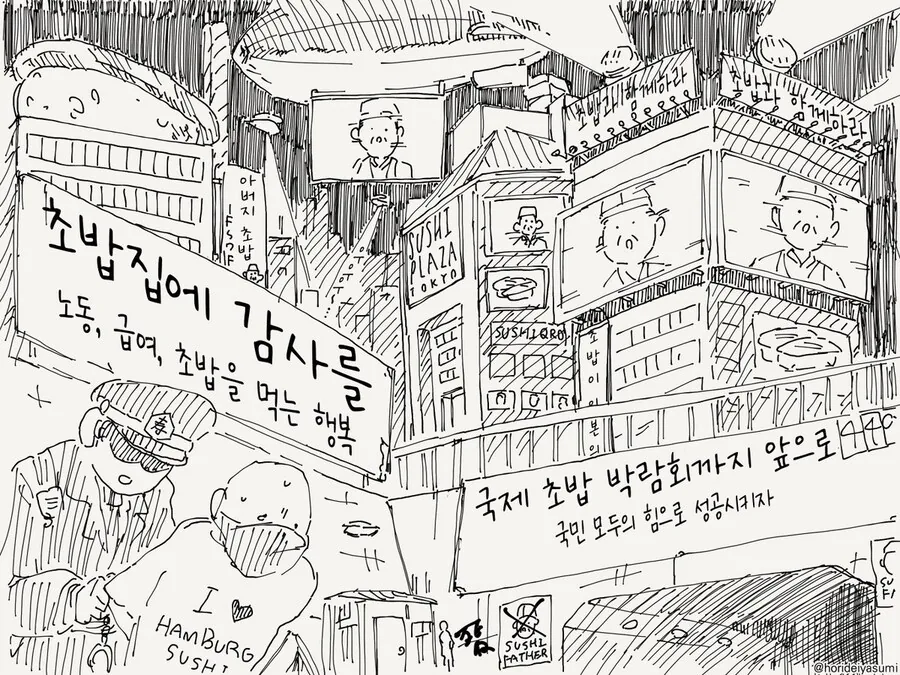 초밥과 함께하라
초밥과 함께하라
아버지 초밥
SUSHI
PLAZA
TOKYO
초밥집에 감사를
노동, 급여, 초밥을 먹는 행복
SUSHI QRO
초밥이 일본의
국제 초밥 박람회까지 앞으로 440
국민 모두의 힘으로 성공시키자
寿
I ♥
HAMBURG
SUSHI
SUSHI
FATHER
@horideiyasumi